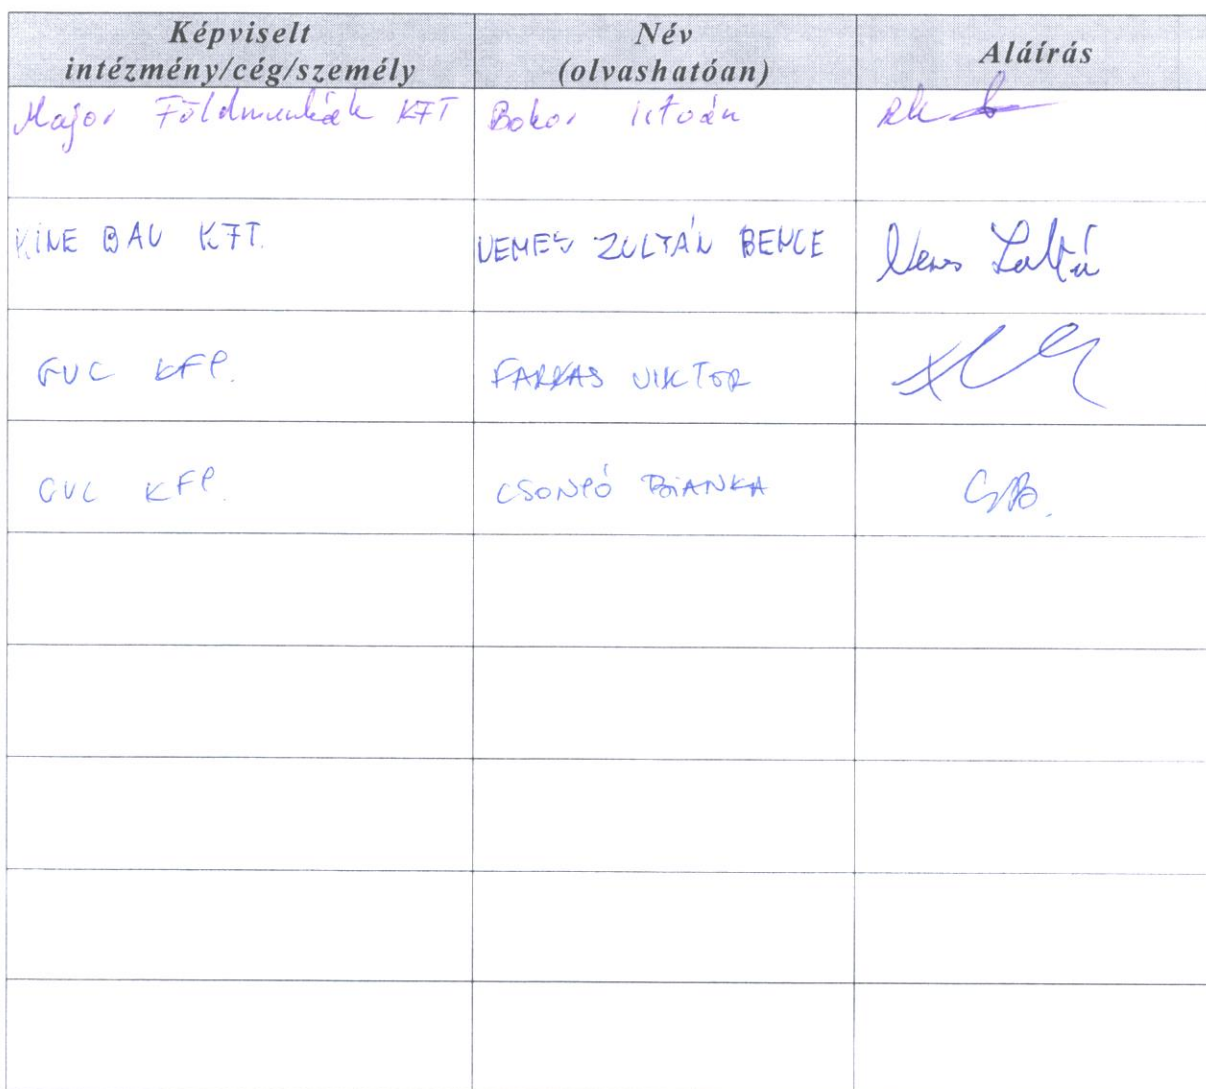 Képviselt Név Aláírás
intézmény/cég/személy (olvashatóan)
Major Földmunkák KFT Bokor István
KINE BAU KFT. NEMES ZOLTÁN BENCE Nemes Zoltán
GVC KFT. FARKAS VIKTOR
GVC KFT. CSONPÓ BIANKA CSB.